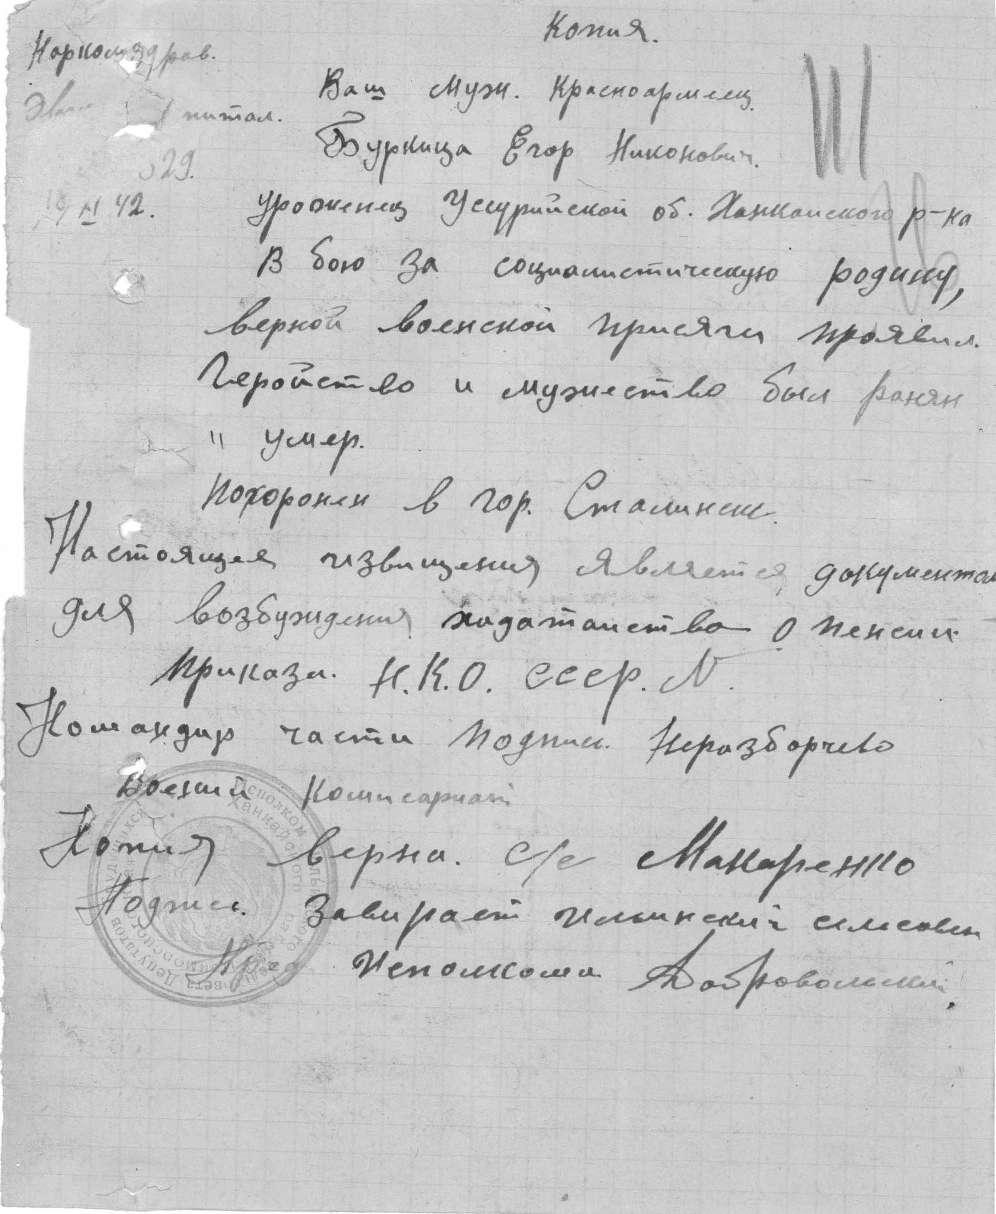 Копия.
Наркомздрав.
Ваш муж. Красноармеец.
питал.
Буркица Егор Никонович.
329.
19/XI 42.
уроженец Уссурийской об. Ханкайского р-на
В бою за социалистическую родину,
верной военской присяги проявил.
Геройство и мужество был ранян
" умер.
Похоронен в гор. Сталинск.
Настоящея извищения является документом
для возбуждения ходатайства о пенсии
приказа. Н.К.О. СССР. N.
Командир части подпись. Неразборчево
Воений Комисариат
Копия верна. с/с Макаренко
Подпись. Завирает Ильинский сельсовет
Пред Исполкома Добровольский.